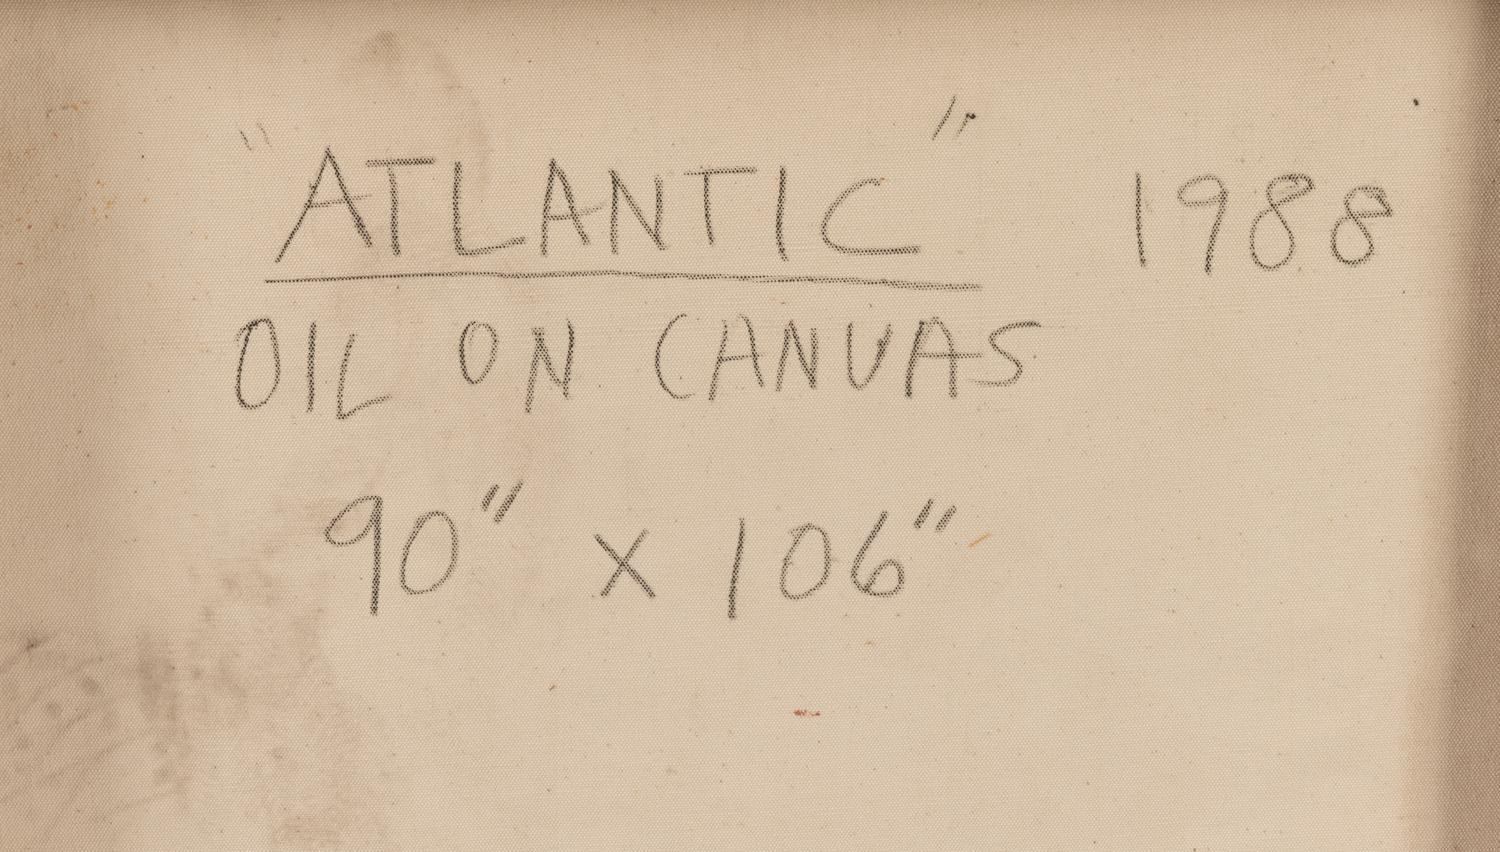 "ATLANTIC" 1988
OIL ON CANVAS
90" x 106"